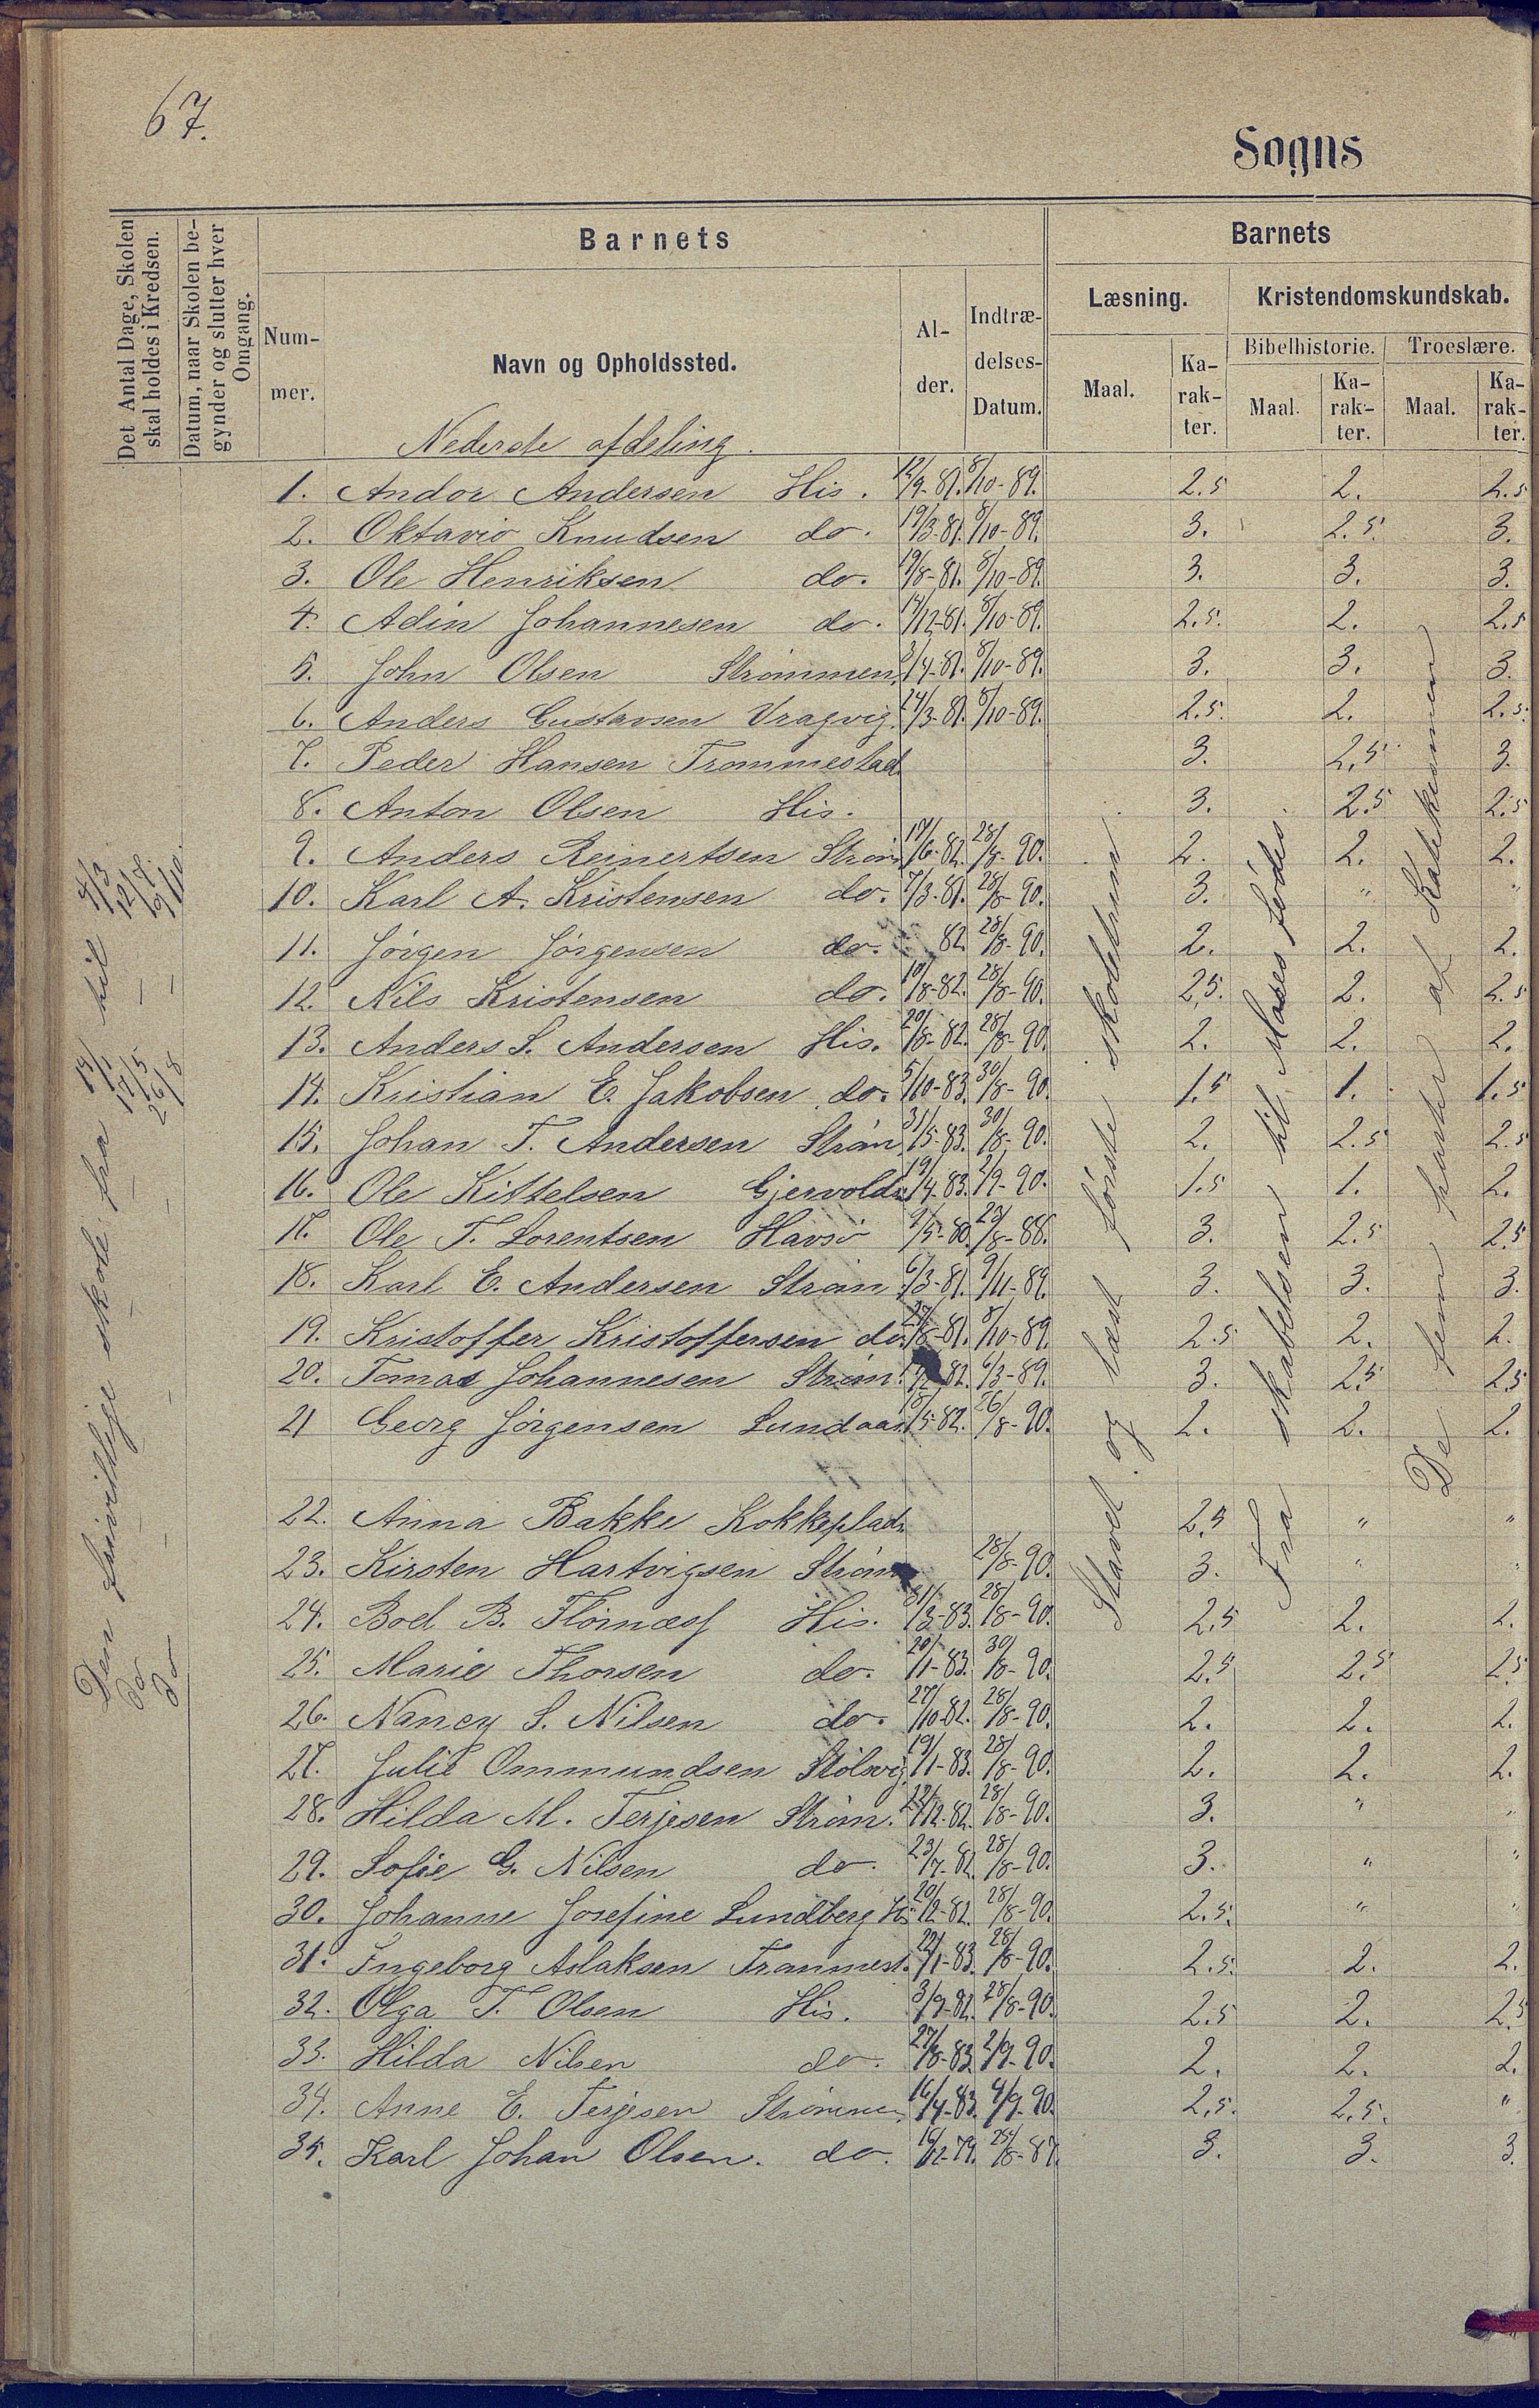 67.
Sogns
Det Antal Dage, Skolen skal holdes i Kredsen.
Datum, naar Skolen begynder og slutter hver Omgang.
Barnets
Nummer.
Navn og Opholdssted.
Alder.
Indtrædelses-Datum.
Barnets
Læsning.
Kristendomskundskab.
Maal.
Karakter.
Bibelhistorie.
Troeslære.
Maal.
Karakter.
Maal.
Karakter.
Nederste afdeling.
1. Andor Andersen His. 12/9-81. 8/10-89. 2.5 2. 2.5
2. Oktavio Knudsen do. 19/3-81. 8/10-89. 3. 2.5. 3.
3. Ole Henriksen do. 19/8-81. 8/10-89. 3. 3. 3.
4. Adin Johannesen do. 14/12-81. 8/10-89. 2.5. 2. 2.5
5. John Olsen Strømmen. 3/4-81. 8/10-89. 3. 3. 3.
6. Anders Gustavsen Vragvig. 24/3-81. 8/10-89. 2.5. 2. 2.5.
7. Peder Hansen Trommestad. 3. 2,5 3.
8. Anton Olsen His. 3. 2.5 2.5
9. Anders Reinertsen Strøm 17/6-82. 28/8-90. 2. 2. 2.
10. Karl A. Kristensen do. 7/3-81. 28/8-90. 3. " "
11. Jørgen Jørgensen do. 82. 28/8-90. 2. 2. 2.
12. Nils Kristensen do. 10/8-82. 28/8-90. 2,5. 2. 2.5
13. Anders S. Andersen His. 20/8-82. 28/8-90. 2. 2. 2.
14. Kristian E. Jakobsen do. 5/10-83. 30/8-90. 1.5 1. 1.5
15. Johan T. Andersen Strøm 31/5-83. 30/8-90. 2. 2.5 2.5
16. Ole Kittelsen Gjervolds 19/4-83. 2/9-90. 1.5 1. 2.
17. Ole T. Lorentsen Havsø 9/5-80. 23/8-88. 3. 2.5 2.5
18. Karl E. Andersen Strøm. 6/3-81. 9/11-89. 3. 3. 3.
19. Kristoffer Kristoffersen do. 27/8-81. 8/10-89. 2.5 2. 2.
20. Tomas Johannesen Strøm. 82. 6/3-89. 3. 2.5 2.5
21 Georg Jørgensen Lundaas. 18/5-82. 26/8-90. 2. 2. 2.
22. Anna Bakke Kokkeplads 2.5 " "
23. Kirsten Hartvigsen Strøm 28/8-90. 3. " "
24. Boel B. Flørnæss His. 31/3-83. 28/8-90. 2.5 2. 2.
25. Marie Thorsen do. 20/1-83. 30/8-90. 2.5 2.5 2.5
26. Nancy S. Nilsen do. 27/10-82. 28/8-90. 2. 2. 2.
27. Julie Ommundsen Stølsvig. 19/1-83. 28/8-90. 2. 2. 2.
28. Hilda M. Terjesen Strøm. 22/12-82. 28/8-90. 3. " "
29. Sofie G. Nilsen do. 23/7-82. 28/8-90. 3. " "
30. Johanne Josefine Lundberg His 20/12-82. 28/8-90. 2.5. " "
31. Ingeborg Aslaksen Trommest. 22/1-83. 28/8-90. 2.5. 2. 2.
32. Olga T. Olsen His. 3/9-82. 28/8-90. 2.5 2. 2.5
33. Hilda Nilsen do. 27/8-83. 2/9-90. 2. 2. 2.
34. Anne E. Terjesen Strømmen 16/4-83. 4/9-90. 2,5. 2.5. "
35. Karl Johan Olsen. do. 16/12-79. 25/8-87. 3. 3. 3.
Den frivillige skole fra 14/1 til 4/3
do — — 17/5 — 12/7.
do — — 26/8 — 9/10.
Stavet og læst første skoletrin
Fra skabelsen til Moses fødes
De fem parter af Katekismen